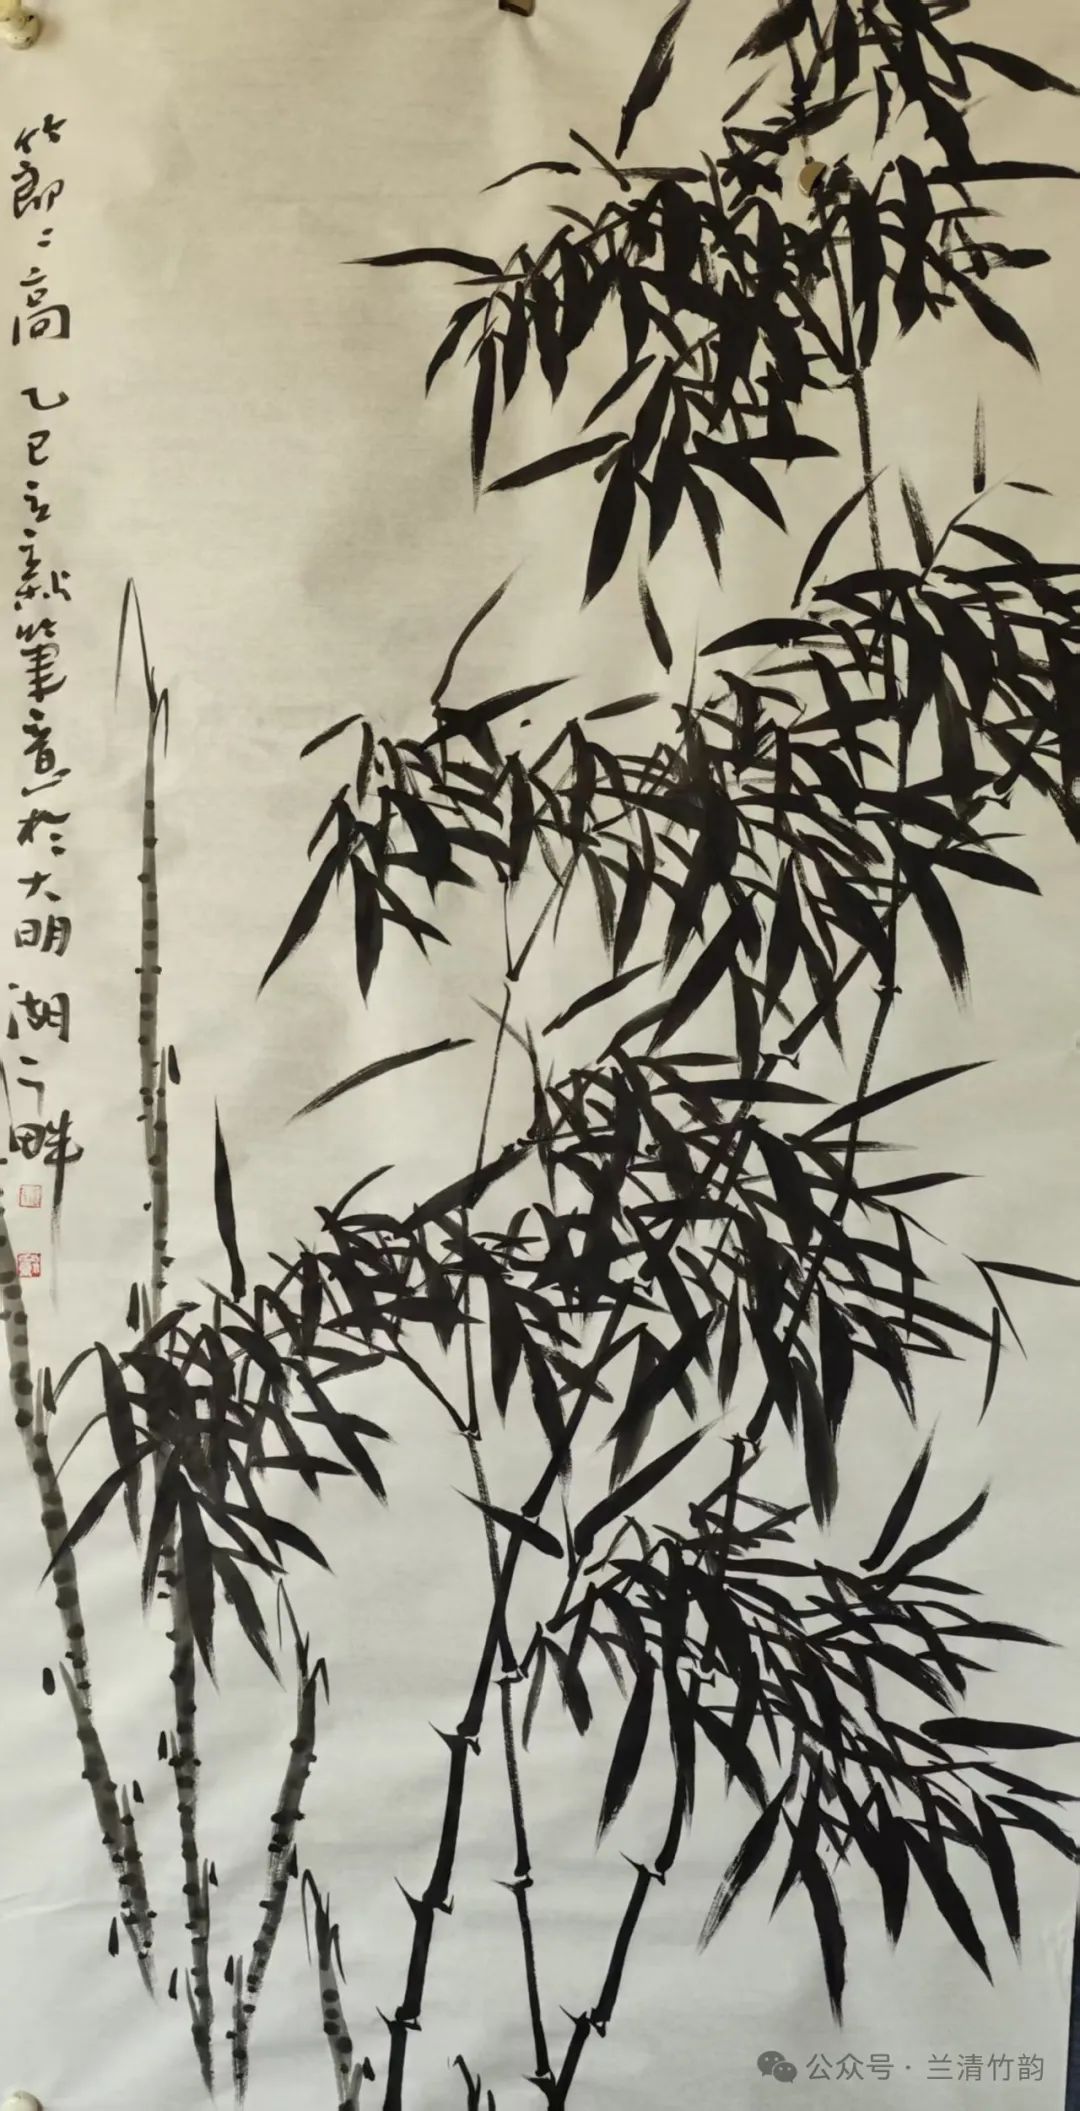 節〻高 乙巳 筆意於大明湖之畔
公众号 · 兰清竹韵